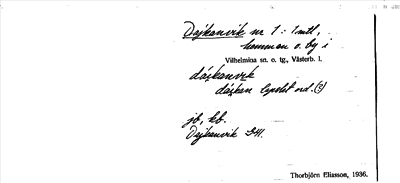 Dajkanvik nr 1:1 mtl,
hemman o. by i
Vilhelmina sn. o. tg., Västerb. l.
dáskanvɩk
dáskan lapskt ord. (?)
jb, kb.
Dajkanvik GK.
Thorbjörn Eliasson, 1936.